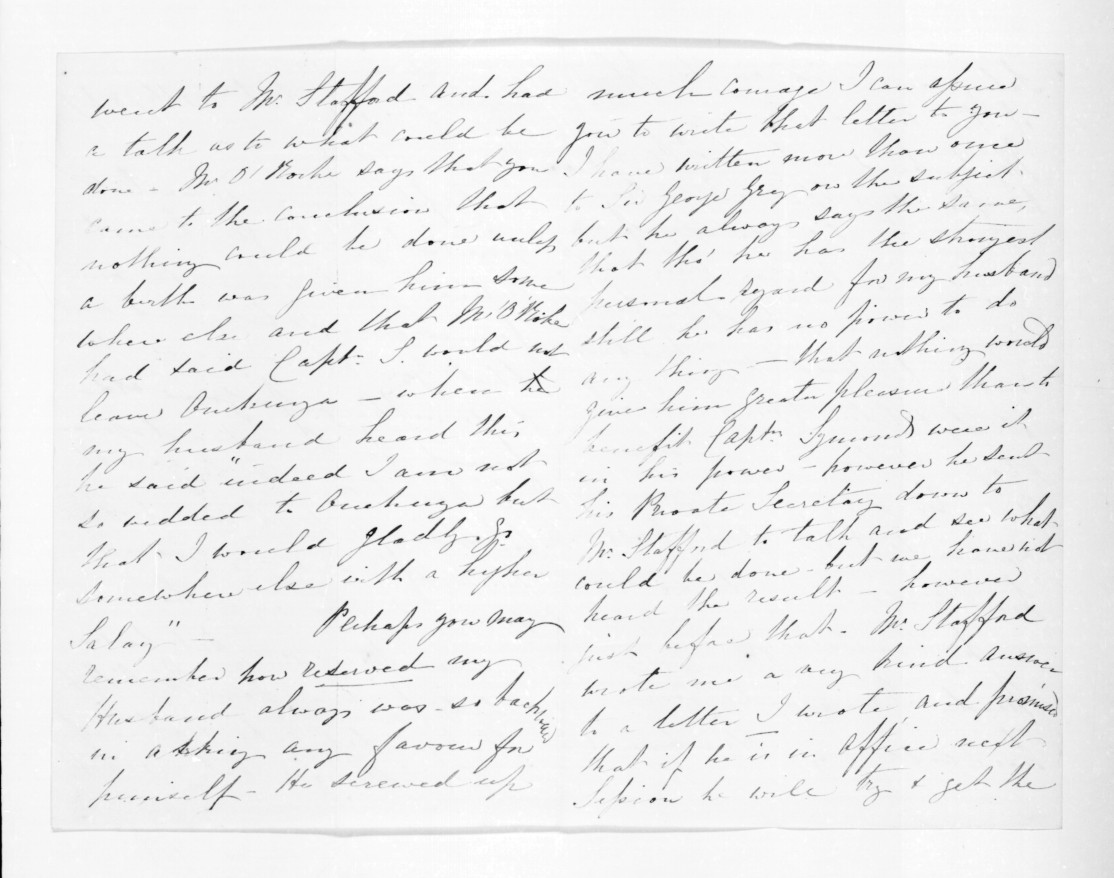 went to Mr. Stafford and had
a talk as to what could be
done - Mr. O'Rorke says that you
came to the conclusion that
nothing could be done unless
a berth was given him some
where else and that Mr O'Rorke
had said Captn. S. would not
leave Onehunga - when
my husband heard this
he said "indeed I am not
so wedded to Onehunga but
that I would gladly go
somewhere else with a higher
Salary" -
Perhaps you may
remember how reserved my
Husband always was - so backward
in asking any favour for
himself - He screwed up
much courage I can assure
you to write that letter to you -
I have written more than once
to Sir George Grey on the subject
but he always says the same,
that tho' he has the strongest
personal regard for my husband
still he has no power to do
any thing - that nothing would
give him greater pleasure than to
benefit Captn. Symonds were it
in his power - however he sent
his Private Secretary down to
Mr. Stafford to talk and see what
could be done - but we have not
heard the result - however
just before that - Mr. Stafford
wrote me a very kind answer
to a letter I wrote, and promised
that if he is in Office next
Session he will try & get the